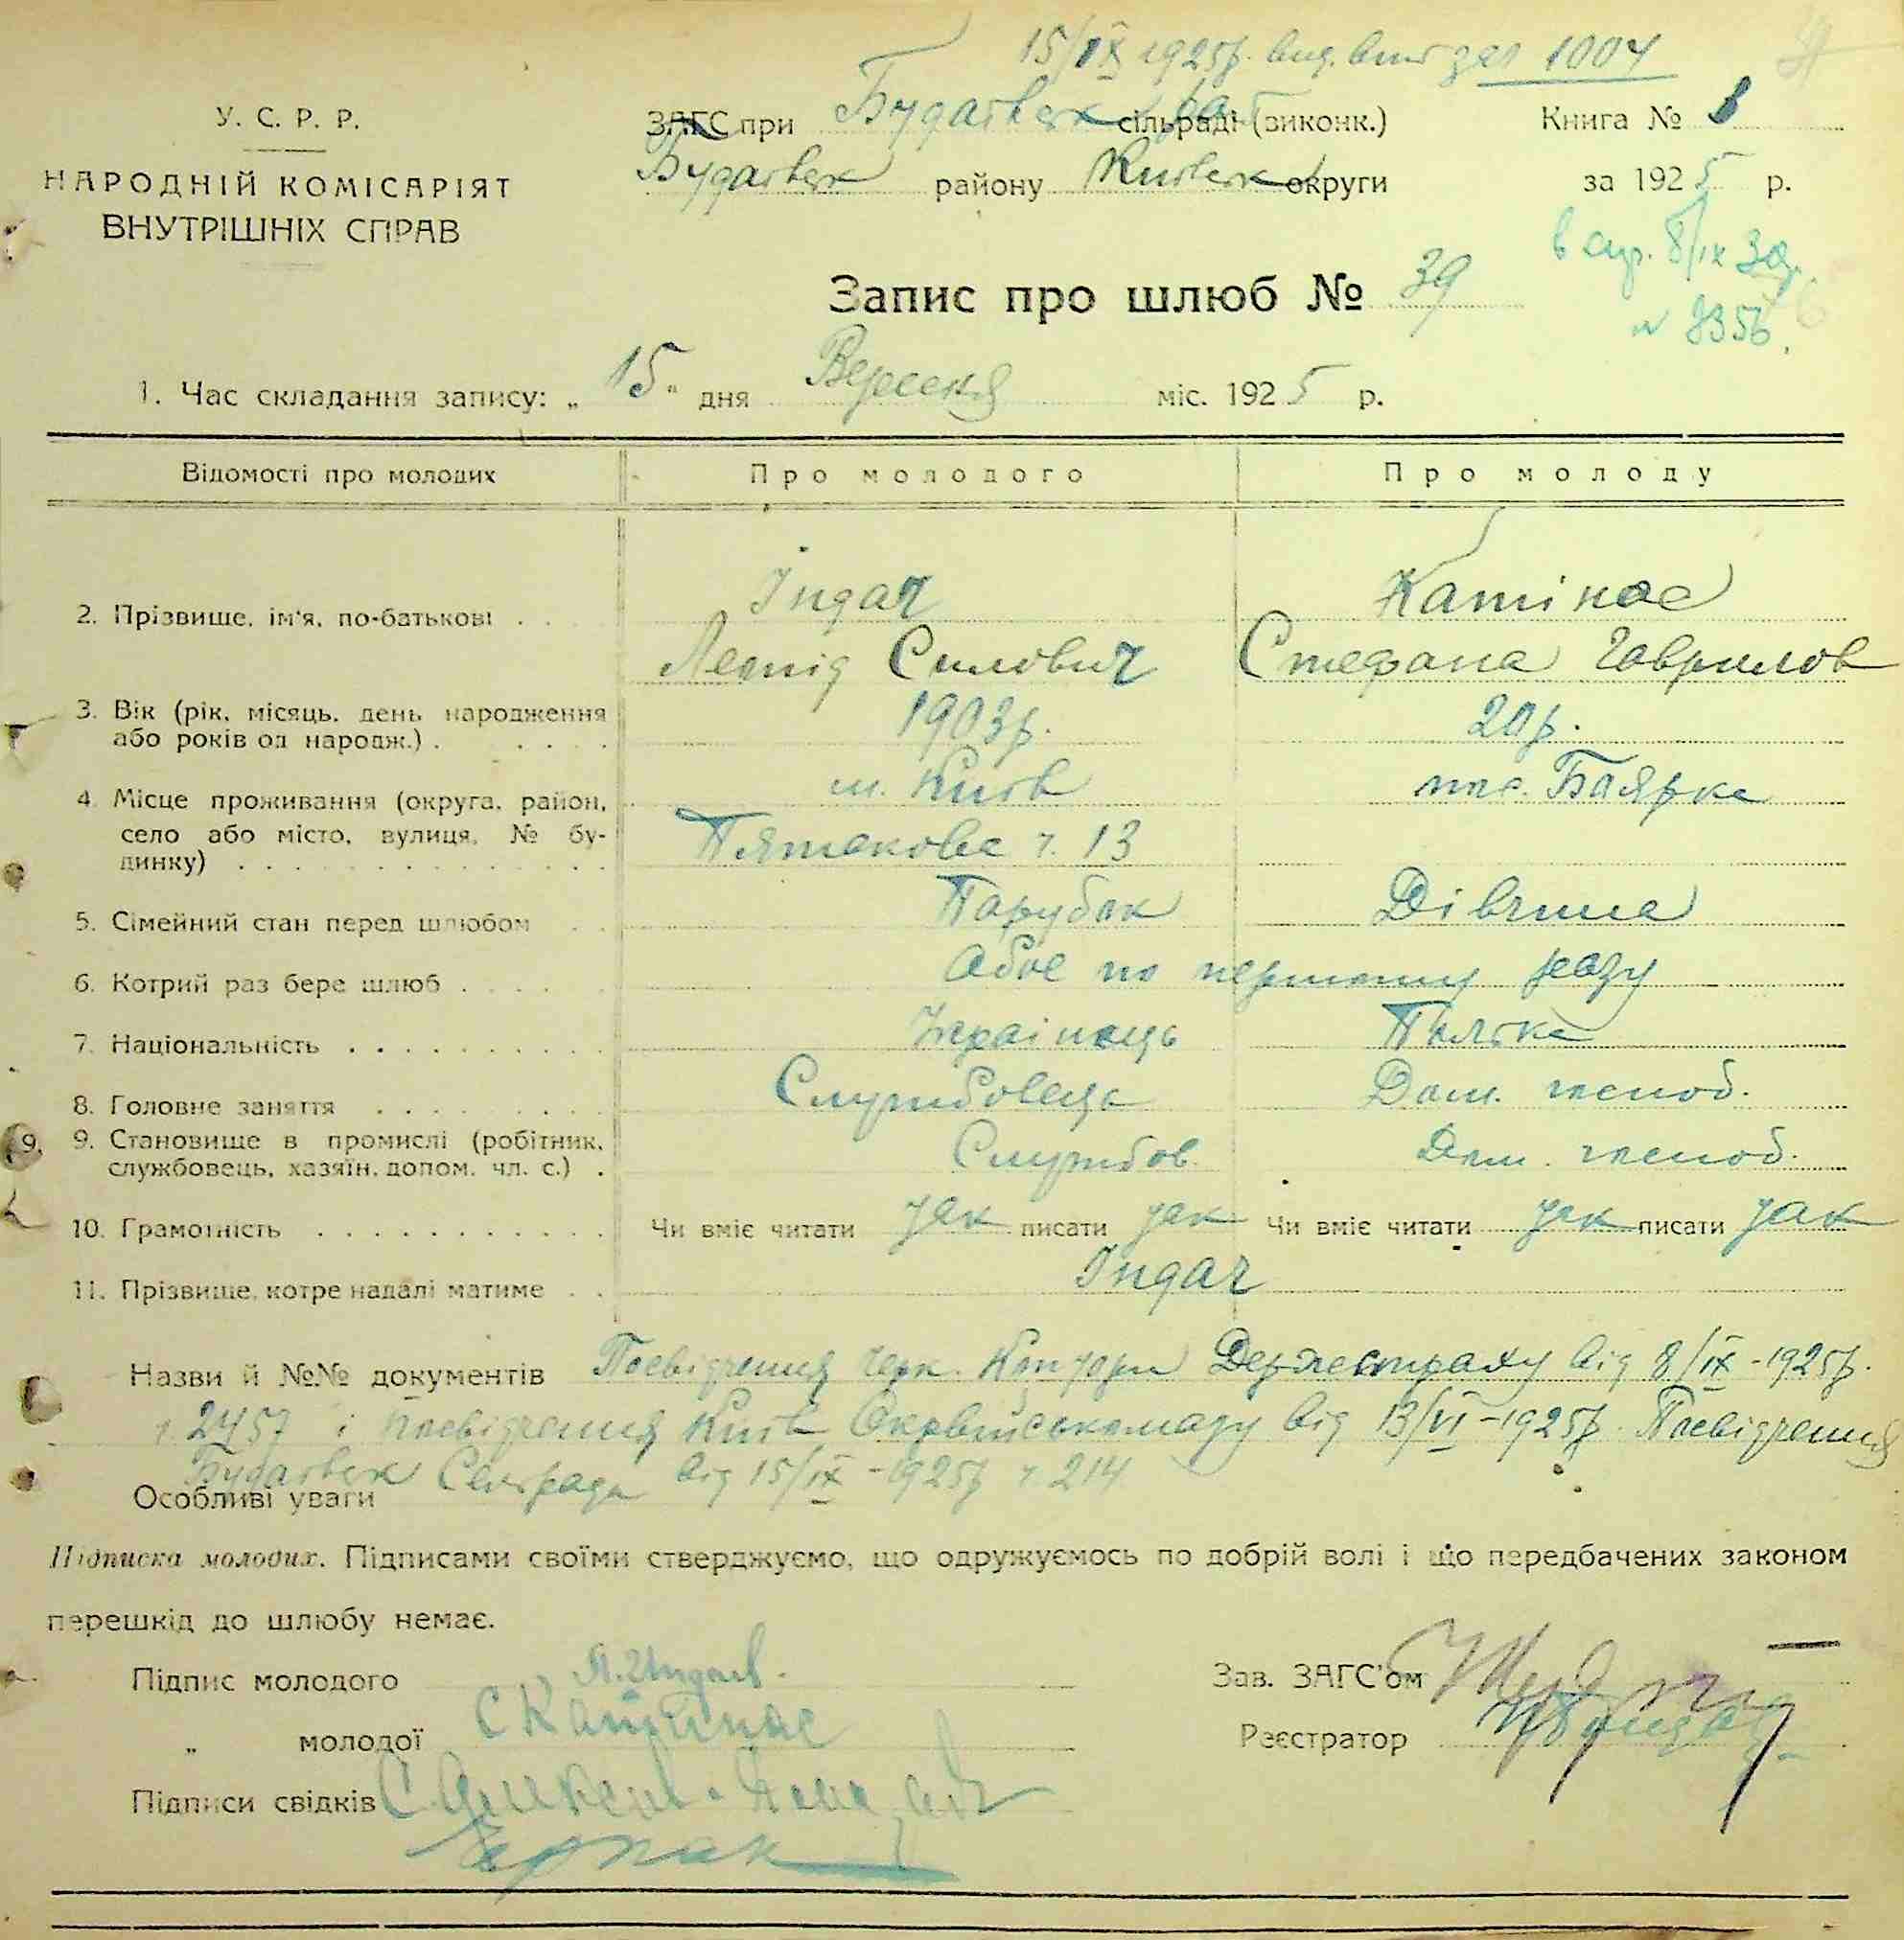 15/IX 1925р. вид. вип за № 1004
У. С. Р. Р.
НАРОДНІЙ КОМІСАРІЯТ
ВНУТРІШНІХ СПРАВ
ЗАГС при Будаївск сільраді (виконк.)
Книга № 1
Будаївск району Київськ округи
за 1925 р.
8/IX
Запис про шлюб № 39
1. Час складання запису: „15" дня Вересня міс. 1925 р.
Відомості про молодих Про молодого Про молоду
2. Прізвище, ім'я, по-батькові
Індач
Катінас
Леонід Силович
Стефана Гаврилов
3. Вік (рік, місяць, день народження або років од народж.)
1903р.
20р.
4. Місце проживання (округа, район, село або місто, вулиця, № будинку)
м. Київ
пос. Боярка
Пятакова ч. 13
5. Сімейний стан перед шлюбом
Парубок
Дівчина
6. Котрий раз бере шлюб
Обоє по першому разу
7. Національність
Українець
Полька
8. Головне заняття
Службовець
Дом. господ.
9. Становище в промислі (робітник, службовець, хазяїн, допом. чл. с.)
Службов.
Дом. господ.
10. Грамотність
Чи вміє читати так писати так
Чи вміє читати так писати так
11. Прізвище, котре надалі матиме
Індач
Назви й №№ документів Посвідчення Черк. Контори Держстраху від 8/IX-1925р.
ч. 2457 і посвідчення Київ Окрвійськомату від 13/VI-1925р. Посвідчення
Будаївськ Сельради від 15/IX-1925р ч. 214
Особливі уваги
Підписка молодих. Підписами своїми стверджуємо, що одружуємось по добрій волі і що передбачених законом
перешкід до шлюбу немає.
Підпис молодого
Зав. ЗАГС'ом
„ молодої С Катінас
Реєстратор
Підписи свідків